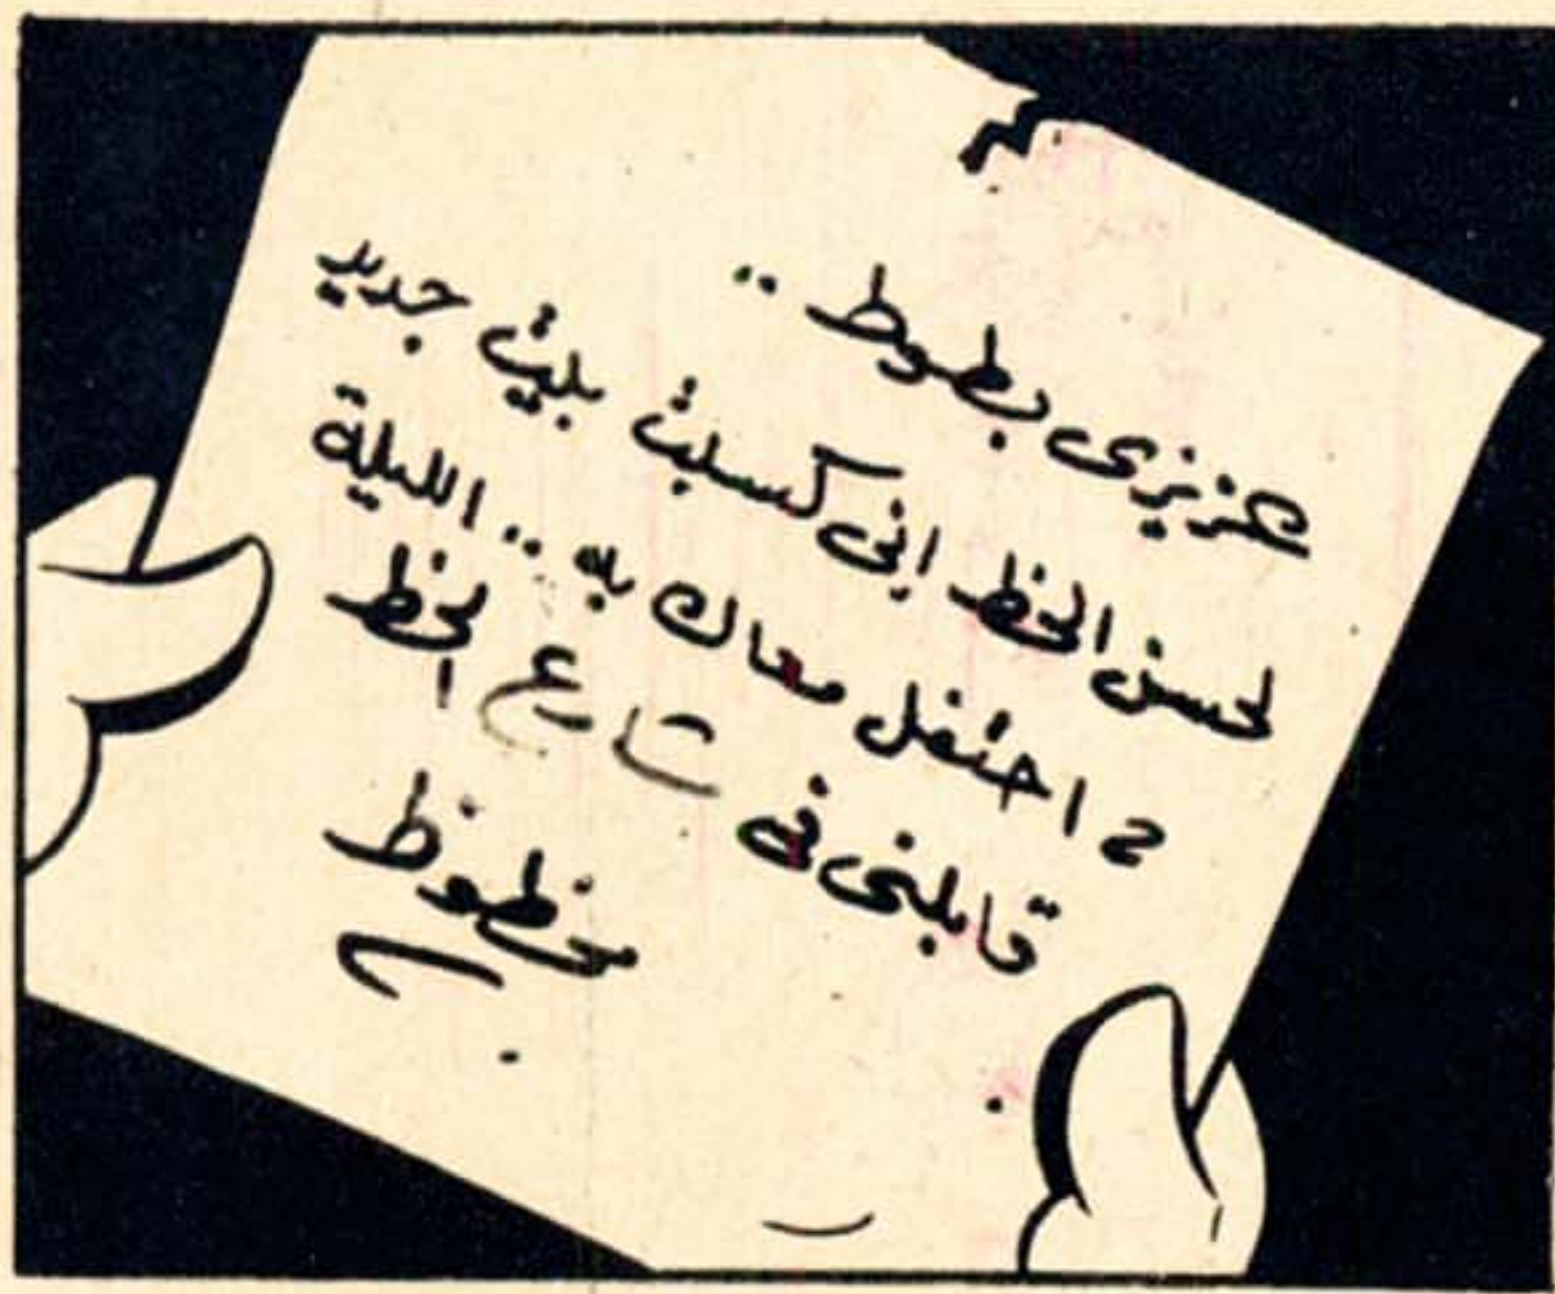 عزيزى بطوط ..
لحسن الحظ انى كسبت بيت جديد
ح احتفل معاك به .. الليلة
قابلنى فى شارع الحظ
محظوظ